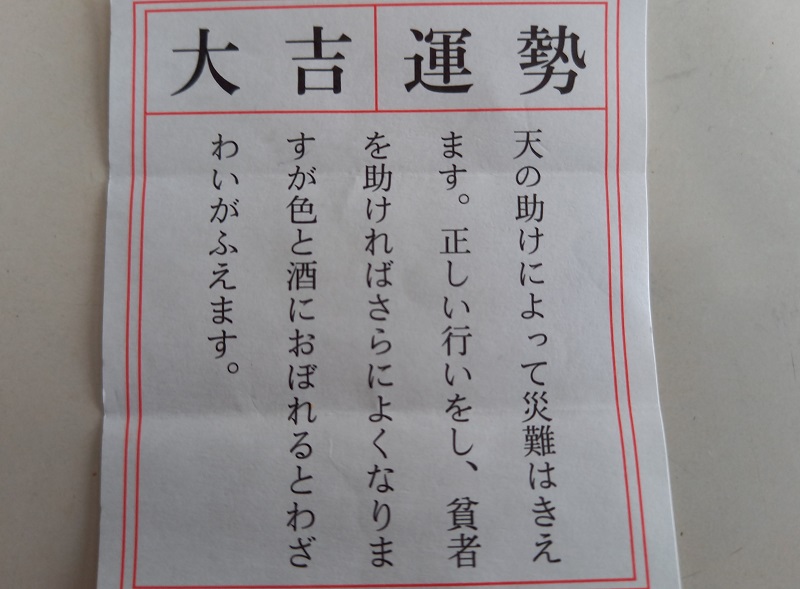 運勢
大吉
天の助けによって災難はきえ
ます。正しい行いをし、貧者
を助ければさらによくなりま
すが色と酒におぼれるとわざ
わいがふえます。